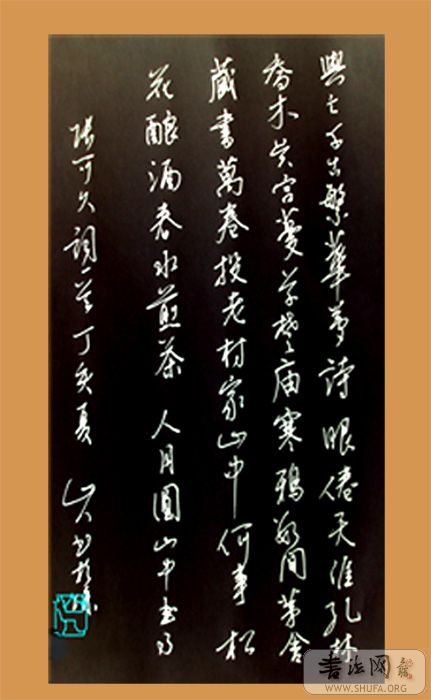 興亡千古繁華夢詩眼倦天涯孔林
喬木吳宮蔓草楚庙寒鴉數間茅舍
藏書萬卷投老村家山中何事松
花酿酒春水煎茶 人月圓山中書事
張可久詞一首丁亥夏
書法网
WWW.SHUFA.ORG